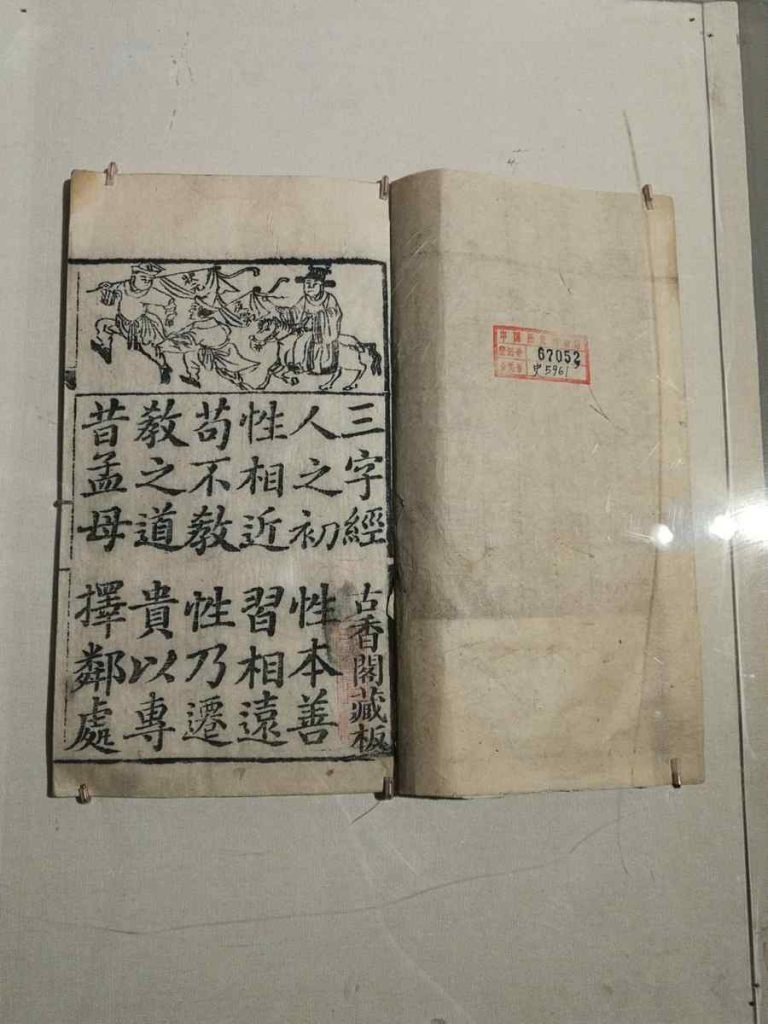 狀元
三字經 古香閣藏板
人之初 性本善
性相近 習相遠
苟不教 性乃遷
教之道 貴以專
昔孟母 擇鄰處
67052
史5961